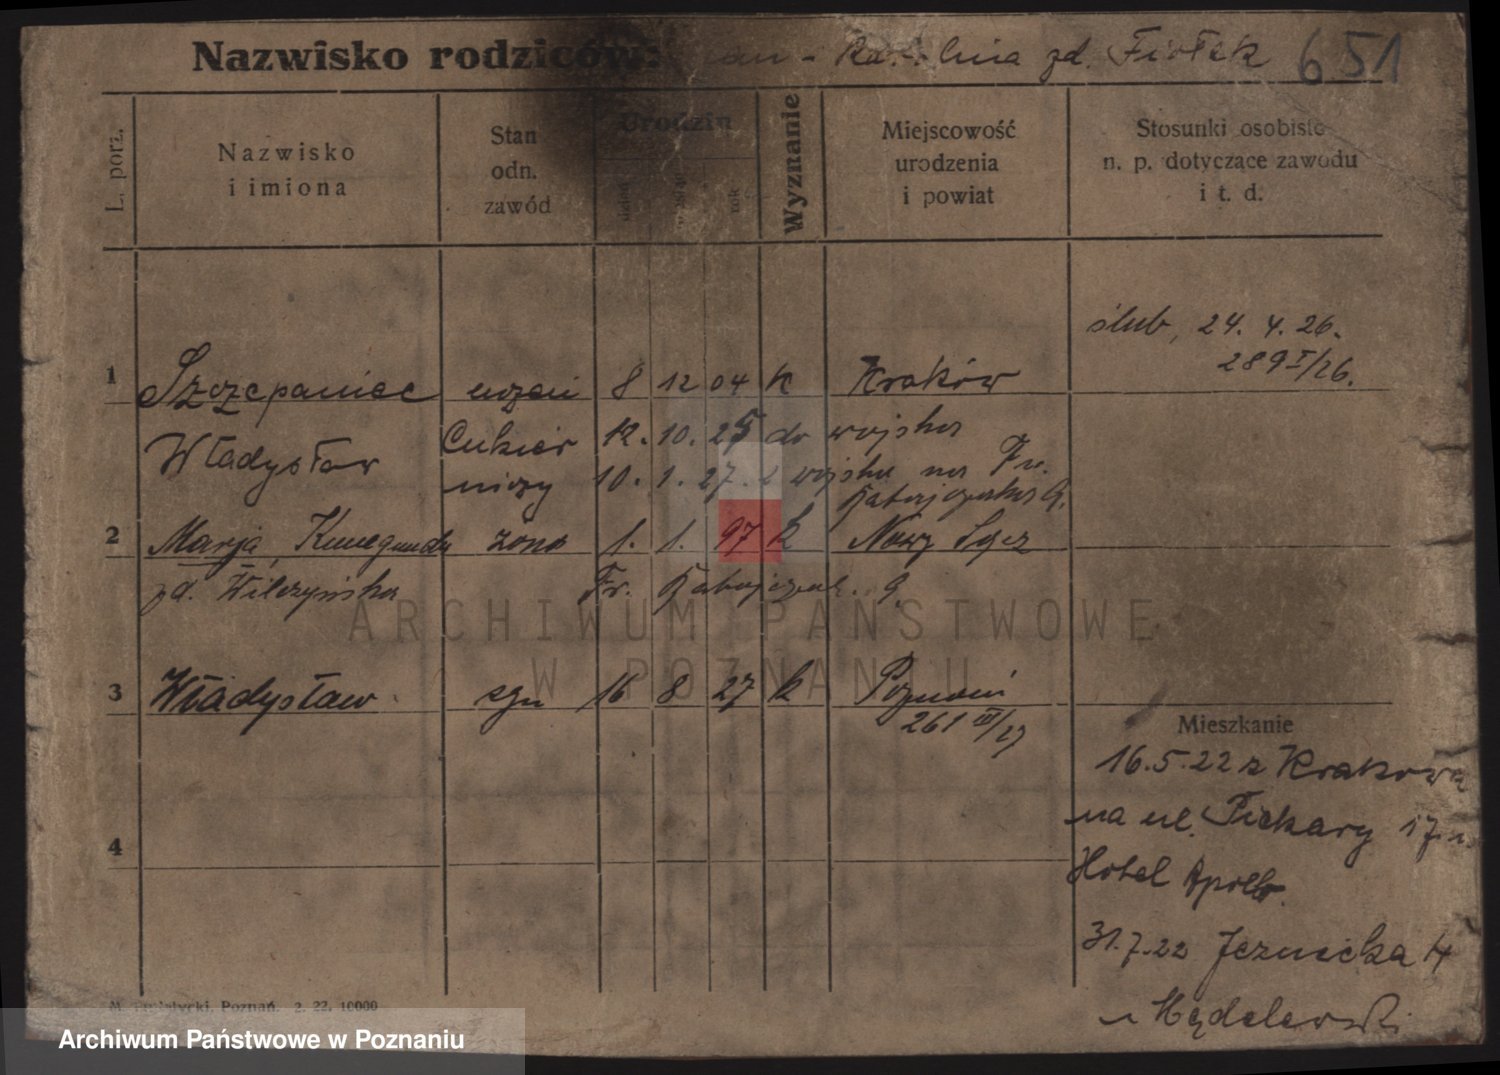 Nazwisko rodziców: Jan - Karolina zd. Fiołek 651
L. porz.
Nazwisko
i imiona
Stan
odn.
zawód
Urodzin
rok
Wyznanie
Miejscowość
urodzenia
i powiat
Stosunki osobiste
n. p. dotyczące zawodu
i t. d.
ślub, 24. 4. 26.
289 I/26.
1 Szczepaniec uczeń 8 12 04 K Kraków
Władysław Cukier 12. 10. 25 do wojska
niczy 10. 1. 27. z wojska na Fr.
Ratajczaka 9.
2 Marja, Kunegunda żona 1. 1. 97 k Nowy Sącz
zd. Wilczyńska Fr. Ratajczak. 9.
3 Władysław syn 16 8 27 k Poznań
261 III/27
Mieszkanie
16.5.22 z Krakowa
na ul. Piekary 17
Hotel Apollo.
4
31.7.22 Jezuicka 4
M. Poznań. 2. 22. 10000
ARCHIWUM PAŃSTWOWE
W POZNANIU
Archiwum Państwowe w Poznaniu